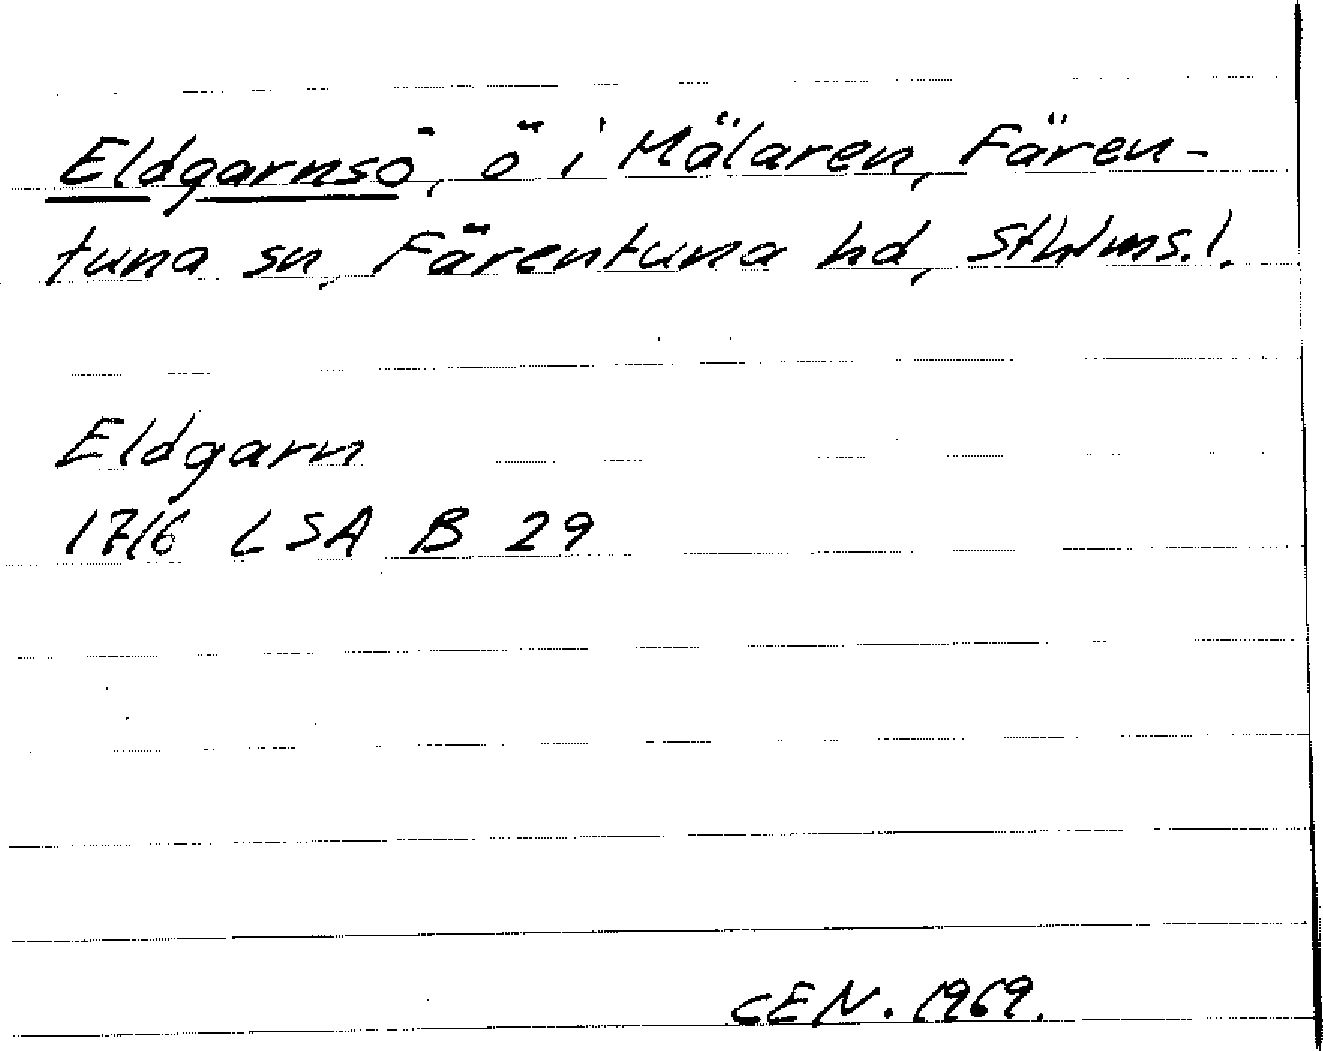 Eldgarnsö, ö i Mälaren, Fären-
tuna sn, Färentuna hd, Sthlms.l.
Eldgarn
1716 LSA B 29
CEN. 1969.